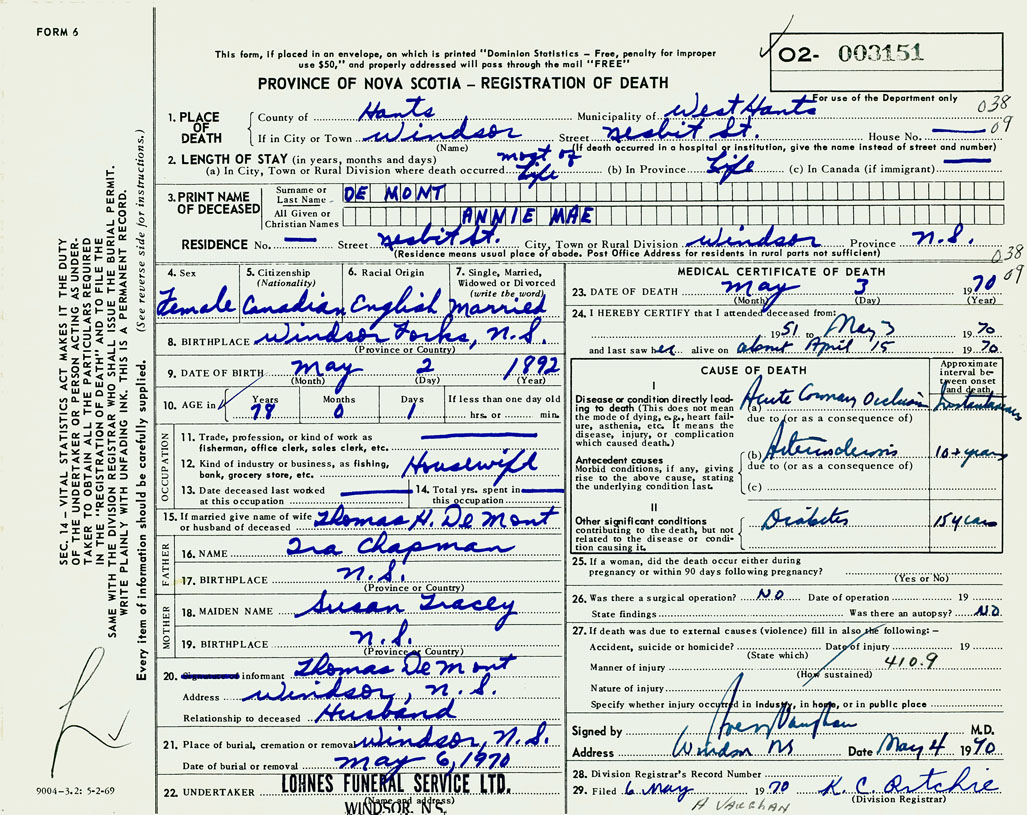 FORM 6
This form, if placed in an envelope, on which is printed "Dominion Statistics – Free, penalty for improper
use $50," and properly addressed will pass through the mail "FREE"
PROVINCE OF NOVA SCOTIA – REGISTRATION OF DEATH
O2- 003151
For use of the Department only
038
09
1. PLACE OF DEATH
County of Hants Municipality of West Hants
If in City or Town Windsor Street Nesbit St. House No. —
(Name) (If death occurred in a hospital or institution, give the name instead of street and number)
2. LENGTH OF STAY (in years, months and days)
(a) In City, Town or Rural Division where death occurred most of Life (b) In Province Life (c) In Canada (if immigrant) —
3. PRINT NAME OF DECEASED
Surname or Last Name DE MONT
All Given or Christian Names ANNIE MAE
RESIDENCE No. — Street Nesbit St. City, Town or Rural Division Windsor Province N.S.
(Residence means usual place of abode. Post Office Address for residents in rural parts not sufficient)
038
09
4. Sex Female
5. Citizenship (Nationality) Canadian
6. Racial Origin English
7. Single, Married, Widowed or Divorced (write the word) Married
8. BIRTHPLACE Windsor Forks, N.S.
(Province or Country)
9. DATE OF BIRTH May 2 1892
(Month) (Day) (Year)
10. AGE in Years 78 Months 0 Days 1 If less than one day old
hrs. or min.
OCCUPATION
11. Trade, profession, or kind of work as —
fisherman, office clerk, sales clerk, etc.
12. Kind of industry or business, as fishing, Housewife
bank, grocery store, etc.
13. Date deceased last worked at this occupation —
14. Total yrs. spent in this occupation —
15. If married give name of wife or husband of deceased Thomas H. De Mont
FATHER
16. NAME Ira Chapman
17. BIRTHPLACE N.S.
(Province or Country)
MOTHER
18. MAIDEN NAME Susan Tracey
19. BIRTHPLACE N.S.
(Province or Country)
20. informant Thomas De Mont
Address Windsor, N.S.
Relationship to deceased Husband
21. Place of burial, cremation or removal Windsor, N.S.
Date of burial or removal May 6, 1970
22. UNDERTAKER LOHNES FUNERAL SERVICE LTD.
(Name and address)
WINDSOR, N.S.
MEDICAL CERTIFICATE OF DEATH
23. DATE OF DEATH May 3 1970
(Month) (Day) (Year)
24. I HEREBY CERTIFY that I attended deceased from:
1951 to May 3 1970
and last saw her alive on about April 15 1970
CAUSE OF DEATH
Approximate interval between onset and death
I
Disease or condition directly leading to death (This does not mean the mode of dying, e.g., heart failure, asthenia, etc. It means the disease, injury, or complication which caused death.)
(a) Acute Coronary Occlusion
due to (or as a consequence of)
Antecedent causes
Morbid conditions, if any, giving rise to the above cause, stating the underlying condition last.
(b) 10+ years
due to (or as a consequence of)
(c)
II
Other significant conditions
contributing to the death, but not related to the disease or condition causing it.
Diabetes 15 years
25. If a woman, did the death occur either during pregnancy or within 90 days following pregnancy?
(Yes or No)
26. Was there a surgical operation? NO Date of operation 19
State findings Was there an autopsy? NO
27. If death was due to external causes (violence) fill in also the following: –
Accident, suicide or homicide? Date of injury 19
(State which)
Manner of injury 410.9
(How sustained)
Nature of injury
Specify whether injury occurred in industry, in home, or in public place
Signed by Vaughan M.D.
Address Windsor NS Date May 4 1970
28. Division Registrar's Record Number
29. Filed 6 May 1970 K. C. Ritchie
(Division Registrar)
A VAUGHAN
SEC. 14 – VITAL STATISTICS ACT MAKES IT THE DUTY
OF THE UNDERTAKER OR PERSON ACTING AS UNDER-
TAKER TO OBTAIN ALL THE PARTICULARS REQUIRED
IN THE "REGISTRATION OF DEATH" AND TO FILE THE
SAME WITH THE DIVISION REGISTRAR WHO SHALL ISSUE THE BURIAL PERMIT.
WRITE PLAINLY WITH UNFADING INK. THIS IS A PERMANENT RECORD.
Every item of information should be carefully supplied. (See reverse side for instructions.)
9004-3.2: 5-2-69